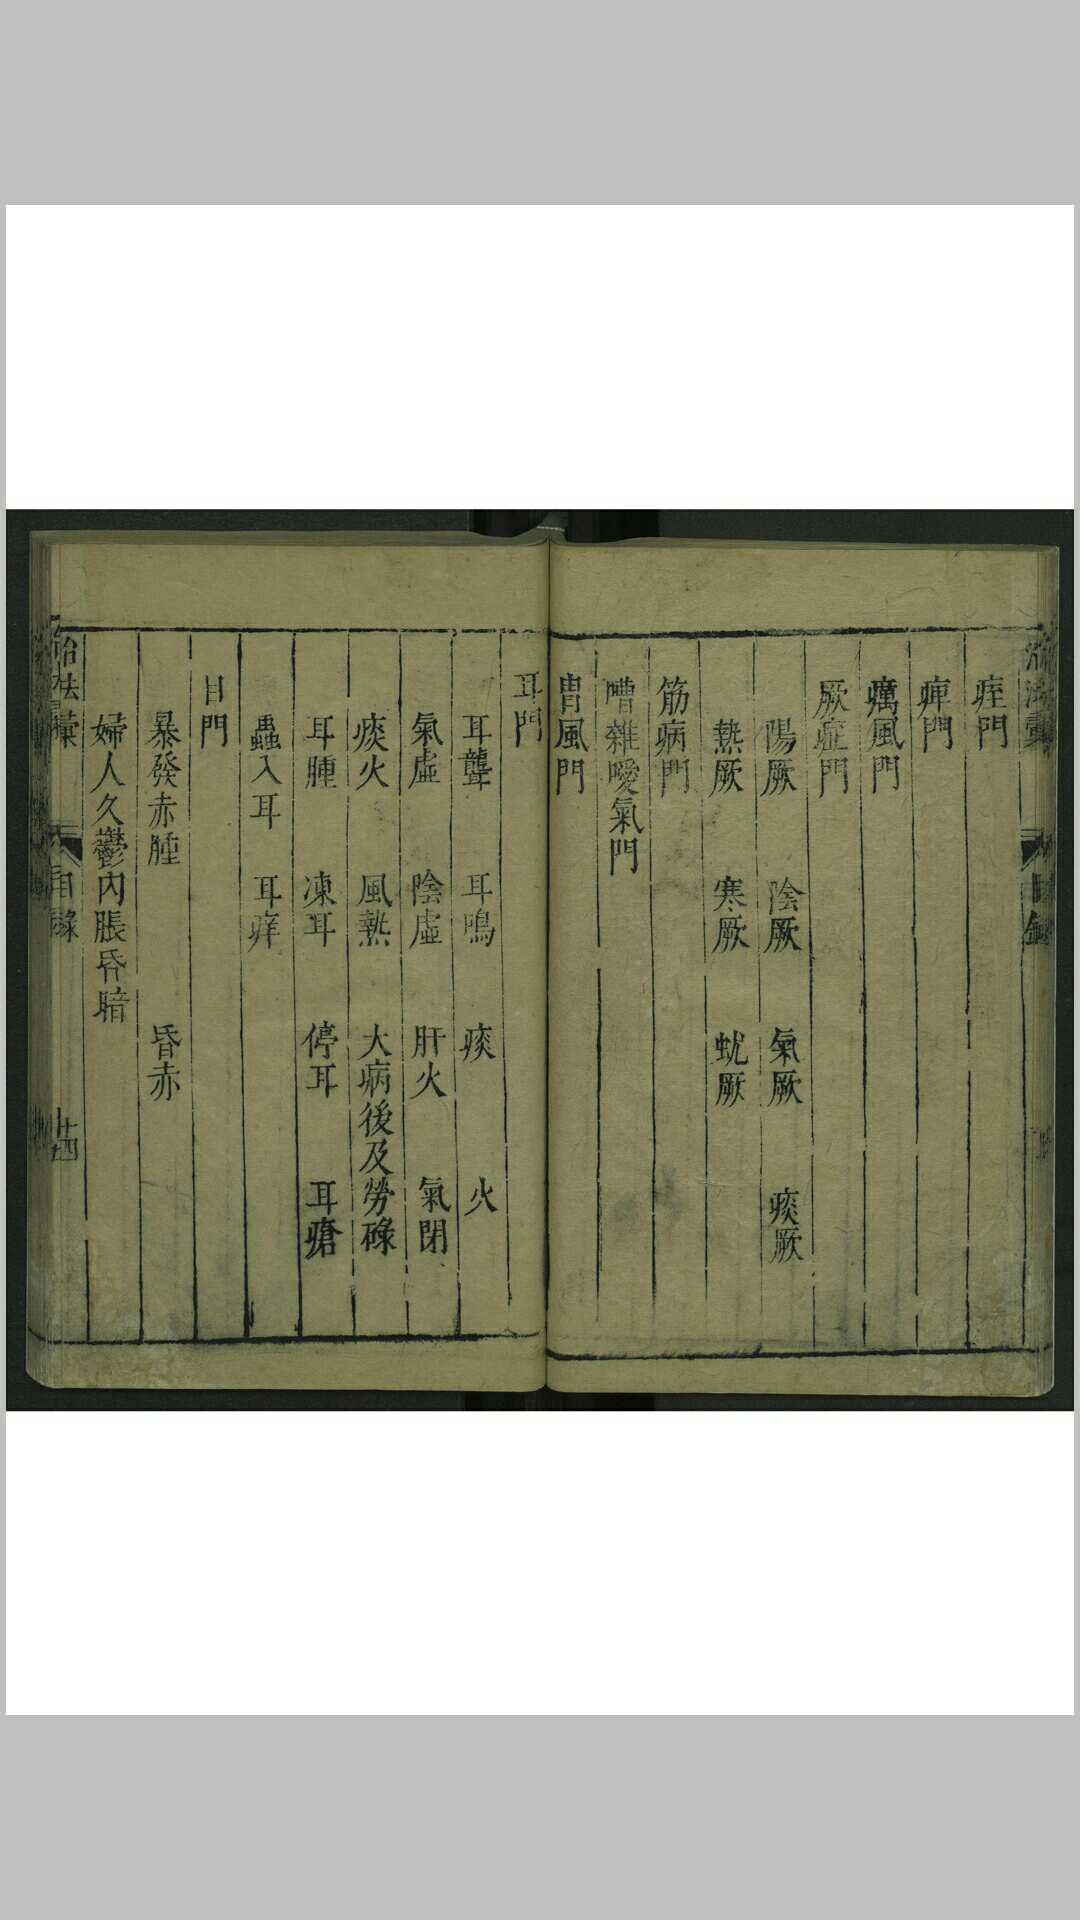 痓門
痺門
癘風門
厥症門
陽厥 陰厥 氣厥 痰厥
熱厥 寒厥 蚘厥
筋病門
嘈雜噯氣門
胃風門
耳門
耳聾 耳鳴 痰 火
氣虛 陰虛 肝火 氣閉
痰火 風熱 大病後及勞碌
耳腫 凍耳 停耳 耳瘡
蟲入耳 耳痒
目門
暴發赤腫 昏赤
婦人久鬱內脹昏暗
治法彙 目錄